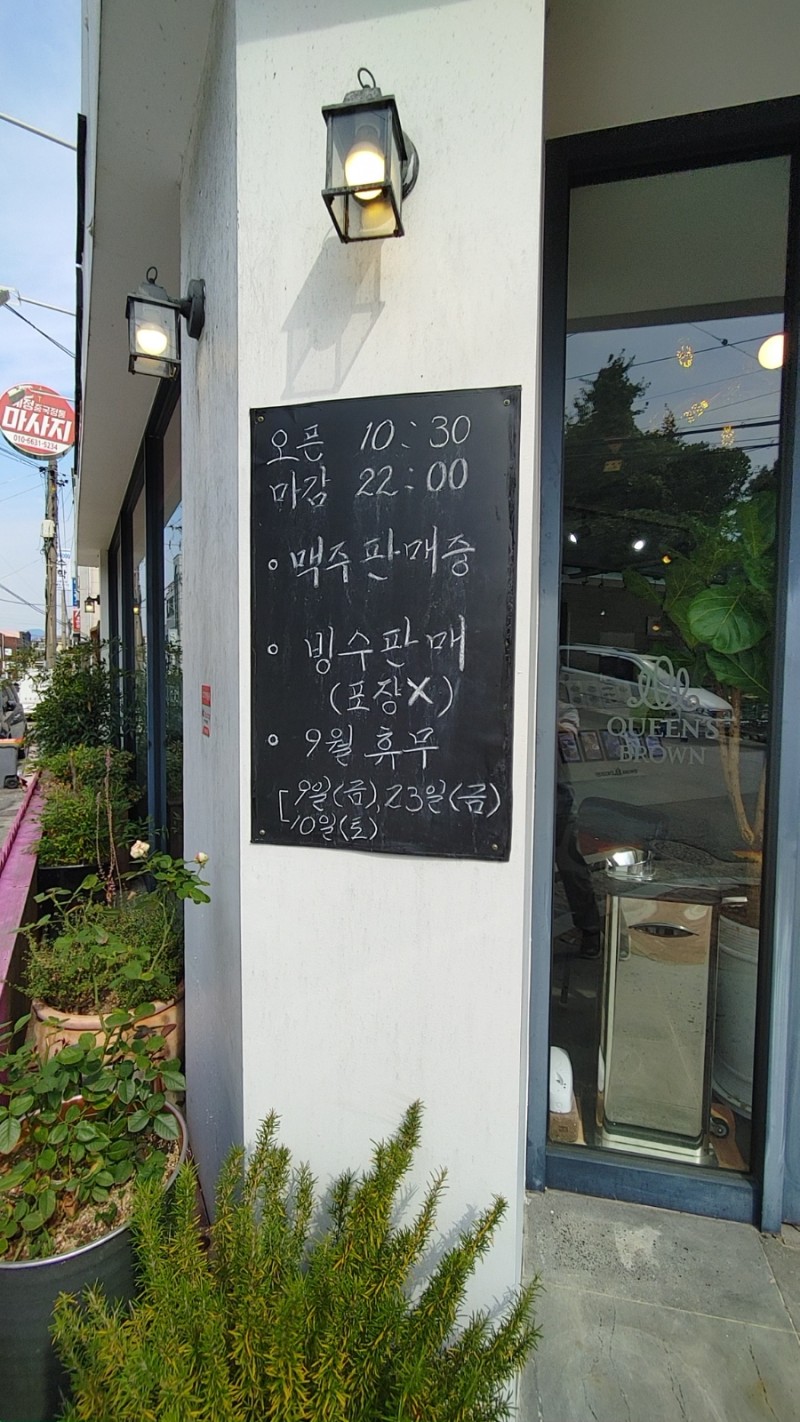 오픈 10:30
마감 22:00
∘ 맥주판매중
∘ 빙수판매
(포장X)
∘ 9월 휴무
[9일(금), 23일(금)
10일(토)
중국정통
마사지
010-6631-5234
QUEEN'S
BROWN